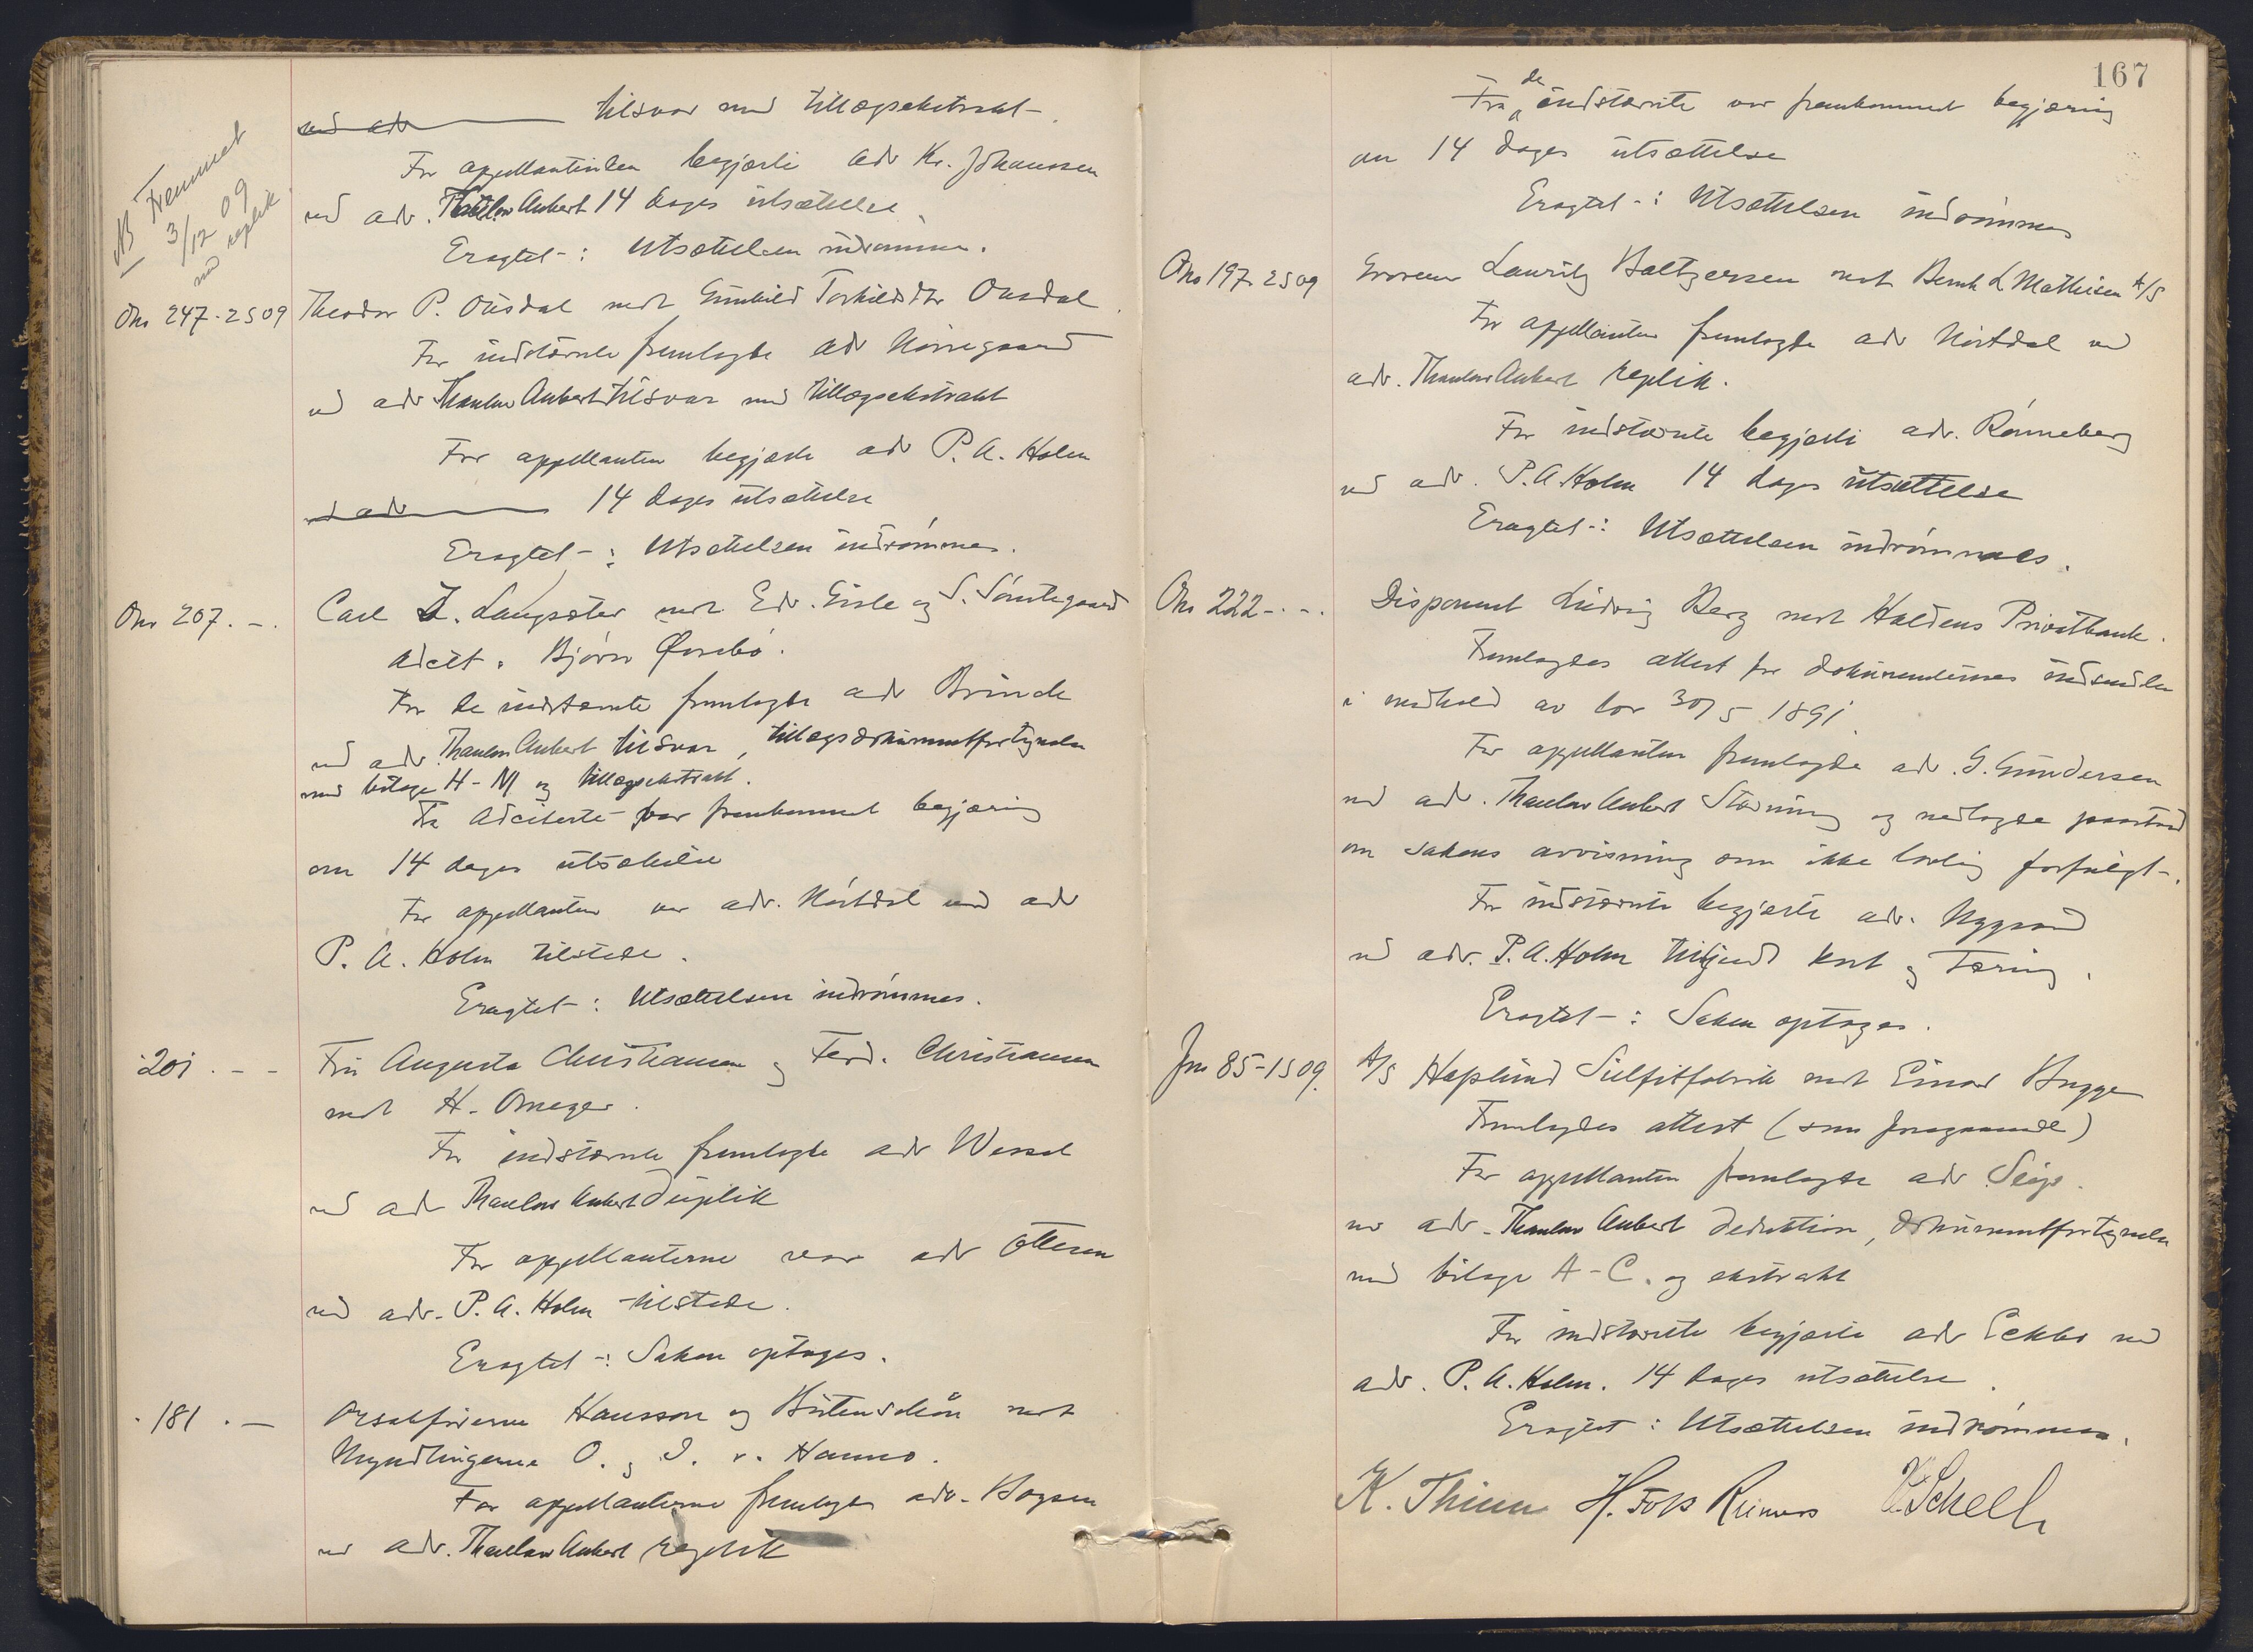 ved adv tilsvar med tillægsekstrakt.
For appellantinden begjærte adv Kr. Johanssen
ved adv. Thaulow Aubert 14 dages utsættelse.
Eragtet: Utsættelsen indrømmes.
NB Fremmet
3/12 09
med replik
Ons 247 - 2 S 09 Theodor P. Ousdal mot Gunhild Torkildsdtr Ousdal.
For indstævnte fremlagde adv Nørregaard
ved adv Thaulow Aubert tilsvar med tillægsekstrakt
For appellanten begjærte adv P. A. Holm
ved adv 14 dages utsættelse
Eragtet: Utsættelsen indrømmes.
Ons 207 . - . Carl Z. Langsæter mot Edv. Gisle og S. Sømtegaard
Adcit. Bjørn Øvrebø.
For de indstævnte fremlagde adv Brinch
ved adv. Thaulow Aubert tilsvar, tillægsdokumentfortegnelse
med bilage H - M og tillægsekstrakt.
Fra adciterte var fremkommet begjæring
om 14 dages utsættelse
For appellanten var adv. Nørtdal ved adv
P. A. Holm tilstede.
Eragtet: Utsættelsen indrømmes.
201 . - - Fru Augusta Christiansen og Ferd. Christiansen
mot H. Omeyer.
For indstævnte fremlagde adv Wessel
ved adv Thaulow Aubert duplik
For appellanterne var adv Ottesen
ved adv. P. A. Holm tilstede.
Eragtet: Saken optages.
181 . - Orsakførerne Hansson og Butenschøn mot
Myndlingerne O. og I. v. Hanno.
For appellanterne fremlagde adv. Boysen
ved adv. Thaulow Aubert replik
167
Fra de indstævnte var fremkommet begjæring
om 14 dages utsættelse
Eragtet: Utsættelsen indrømmes
Ons 197 - 2 S 09 Grosserer Lauritz Baltzersen mot Bernh L Mathisen A/S
For appellanten fremlagde adv Nørtdal ved
adv. Thaulow Aubert replik.
For indstævnte begjærte adv. Rønneberg
ved adv. P. A. Holm 14 dages utsættelse
Eragtet: Utsættelsen indrømmes.
Ons 222 - . - . Disponent Ludvig Berg mot Haldens Privatbank.
Fremlagdes attest for dokumenternes indsendelse
i medhold av lov 30/5 1891
For appellanten fremlagde adv. G. Gundersen
ved adv. Thaulow Aubert Stævning og nedlagde paastand
om sakens avvisning som ikke lovlig forfulgt.
For indstævnte begjærte adv. Nygaard
ved adv. P. A. Holm tilkjendt kost og tæring.
Eragtet: Saken optages.
Jm 85 - 1 S 09. A/S Haslund Sulfitfabrik mot Einar Bugge
Fremlagdes attest (som foregaaende)
For appellanten fremlagde adv Seip.
ved adv. Thaulow Aubert Deduktion, dokumentfortegnelse
med bilage A - C. og ekstrakt
For indstævnte begjærte adv Eckbo ved
adv. P. A. Holm. 14 dages utsættelse.
Eragtet: Utsættelsen indrømmes.
K. Thinn H. Foss Reimers V. Schell